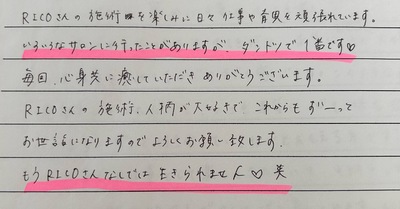 RICOさんの施術日を楽しみに日々仕事や育児を頑張れています。
いろいろなサロンに行ったことがありますが、ダントツで1番です♡
毎回、心身共に癒していただきありがとうございます。
RICOさんの施術、人柄が大好きで これからもずーーって
お世話になりますのでよろしくお願い致します。
もうRICOさんなしでは生きられません♡ 笑